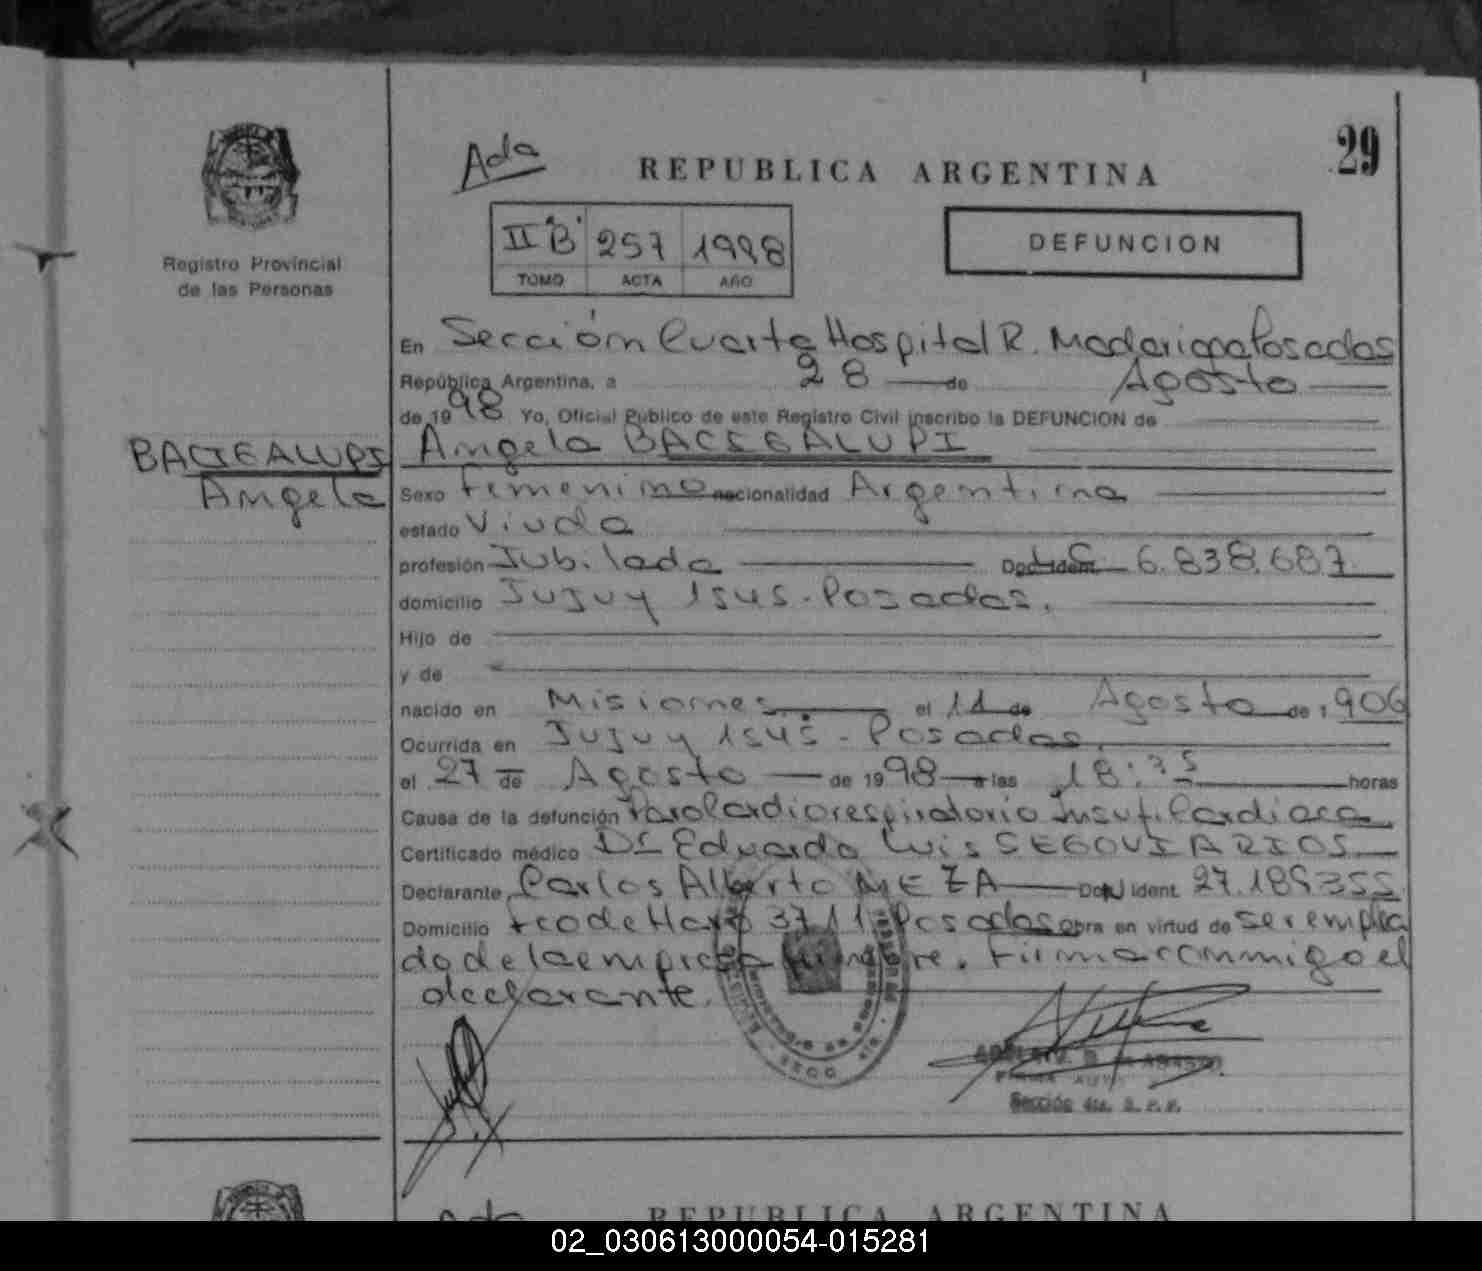 Ada
REPUBLICA ARGENTINA
29
II "B" 257 1998
TOMO ACTA AÑO
DEFUNCION
Registro Provincial
de las Personas
En Sección Cuarta Hospital R. Madariaga Posadas
República Argentina, a 28 de Agosto
de 1998 Yo, Oficial Publico de este Registro Civil inscribo la DEFUNCION de
BACIGALUPI
Angela
Angela BACIGALUPI
Sexo Femenino nacionalidad Argentina
estado Viuda
profesión Jubilada Doc. Ident. LC 6.838.687
domicilio Jujuy 1545 - Posadas.
Hijo de
y de
nacido en Misiones el 11 de Agosto de 1906
Ocurrida en Jujuy 1545 - Posadas.
el 27 de Agosto de 1998 a las 18:35 horas
Causa de la defunción Paro Cardiorespiratorio Insuf. Cardiaca
Certificado médico Dr Eduardo Luis SEGOVIA RIOS
Declarante Carlos Alberto MEZA ident. 27.189.355
Domicilio Fco de Haro 3711 Posadas obra en virtud de ser emplea
do de la empresa funebre. Firma conmigo el
declarante.
Sección 4ta. R. P. P.
REPUBLICA ARGENTINA
02_030613000054-015281